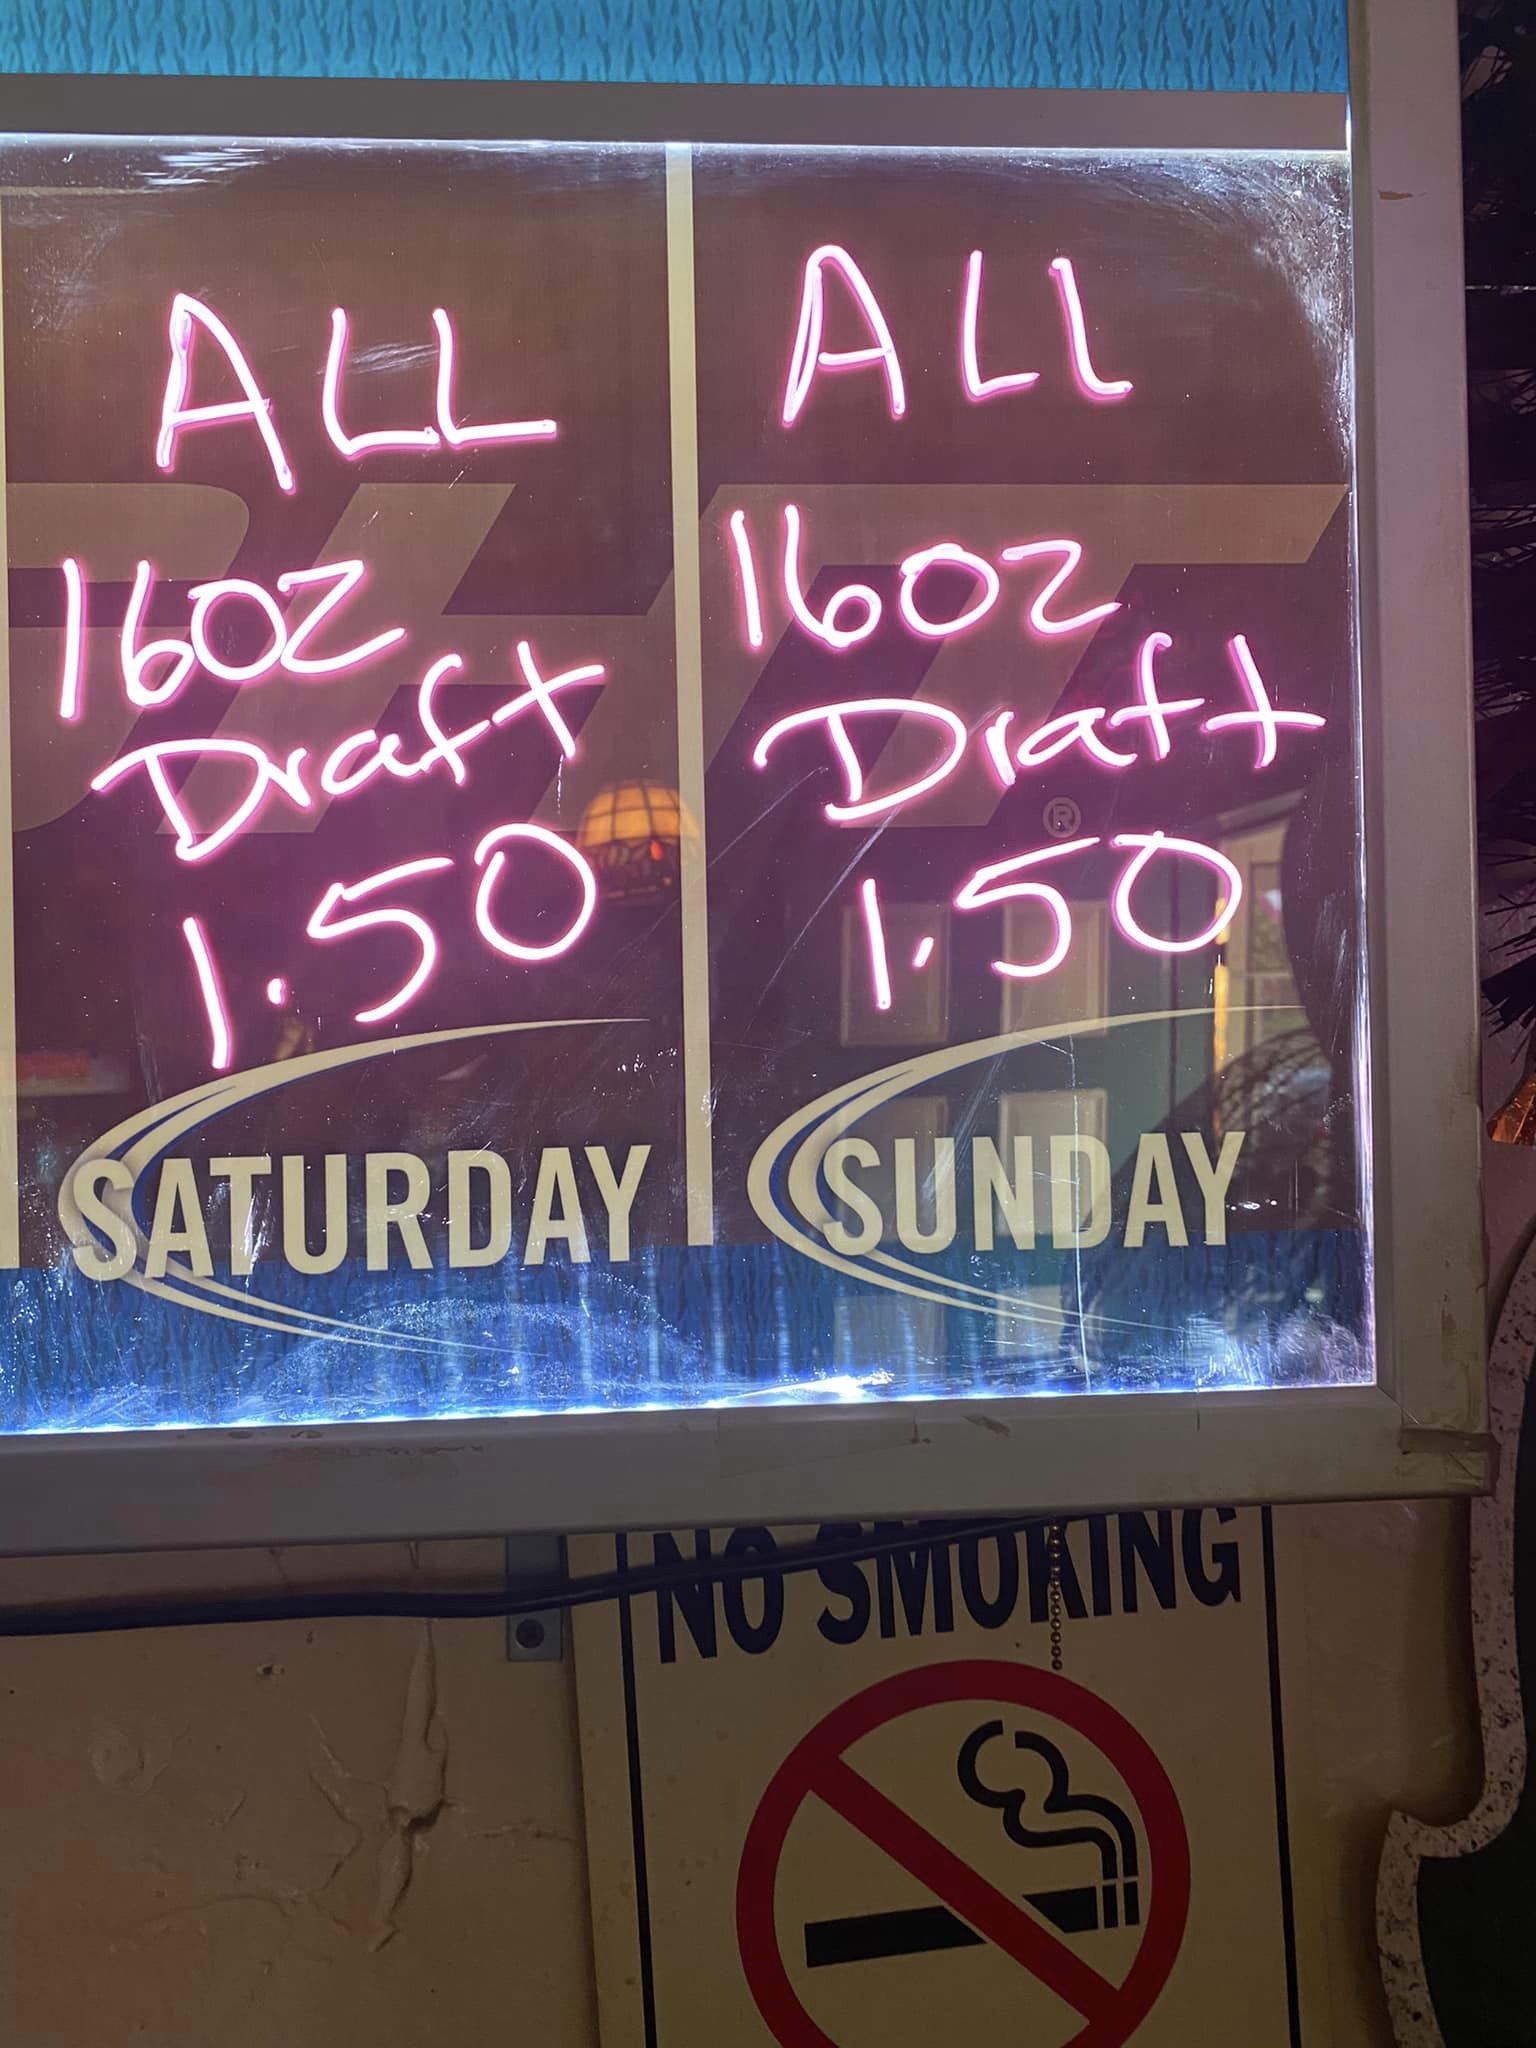 ALL
16oz
Draft
1.50
SATURDAY
ALL
16oz
Draft
1.50
SUNDAY
®
NO SMOKING